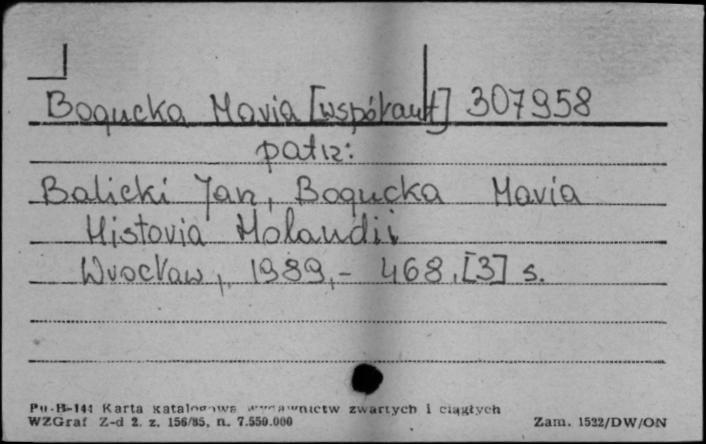 Bogucka Maria [współaut] 307958
patrz:
Balicki Jan, Bogucka Maria
Historia Holandii
Wrocław, 1989,- 468,[3] s.
Pu-B-144 Karta katalogowa wydawnictw zwartych i ciągłych
WZGraf Z-d 2. z. 156/85, n. 7.550.000
Zam. 1522/DW/ON